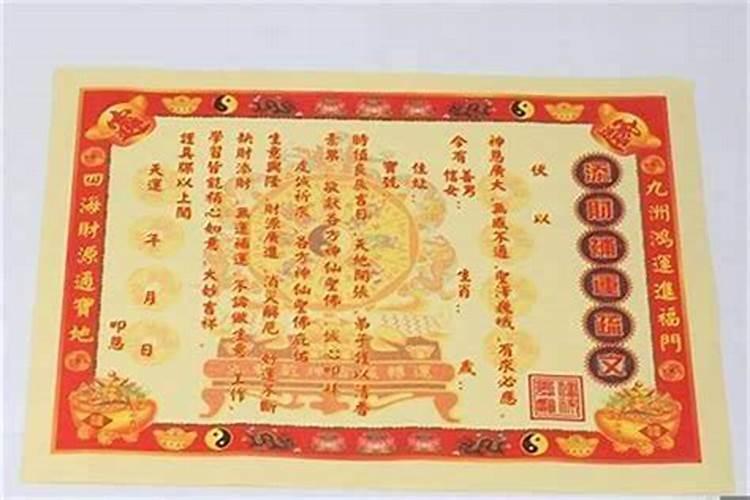 九洲鴻運進福門
添財補運疏文
伏以
神恩廣大 無感不通 聖澤巍峨 有求必應
今有善男信女： 生肖： 歲：
住址：
寶號
時值良辰吉日 天地開張 弟子僅以清香
素果 敬獻各方神仙聖佛 誠心叩拜
虔誠祈求 各方神仙聖佛庇佑
生意興隆 財源廣進 消災解厄 好運不斷
缺財添財 無運補運 不論做生意 工作、
學習皆能稱心如意 大妙吉祥
謹具疏以上聞
天運 年 月 日
叩懇
四海財源通寶地